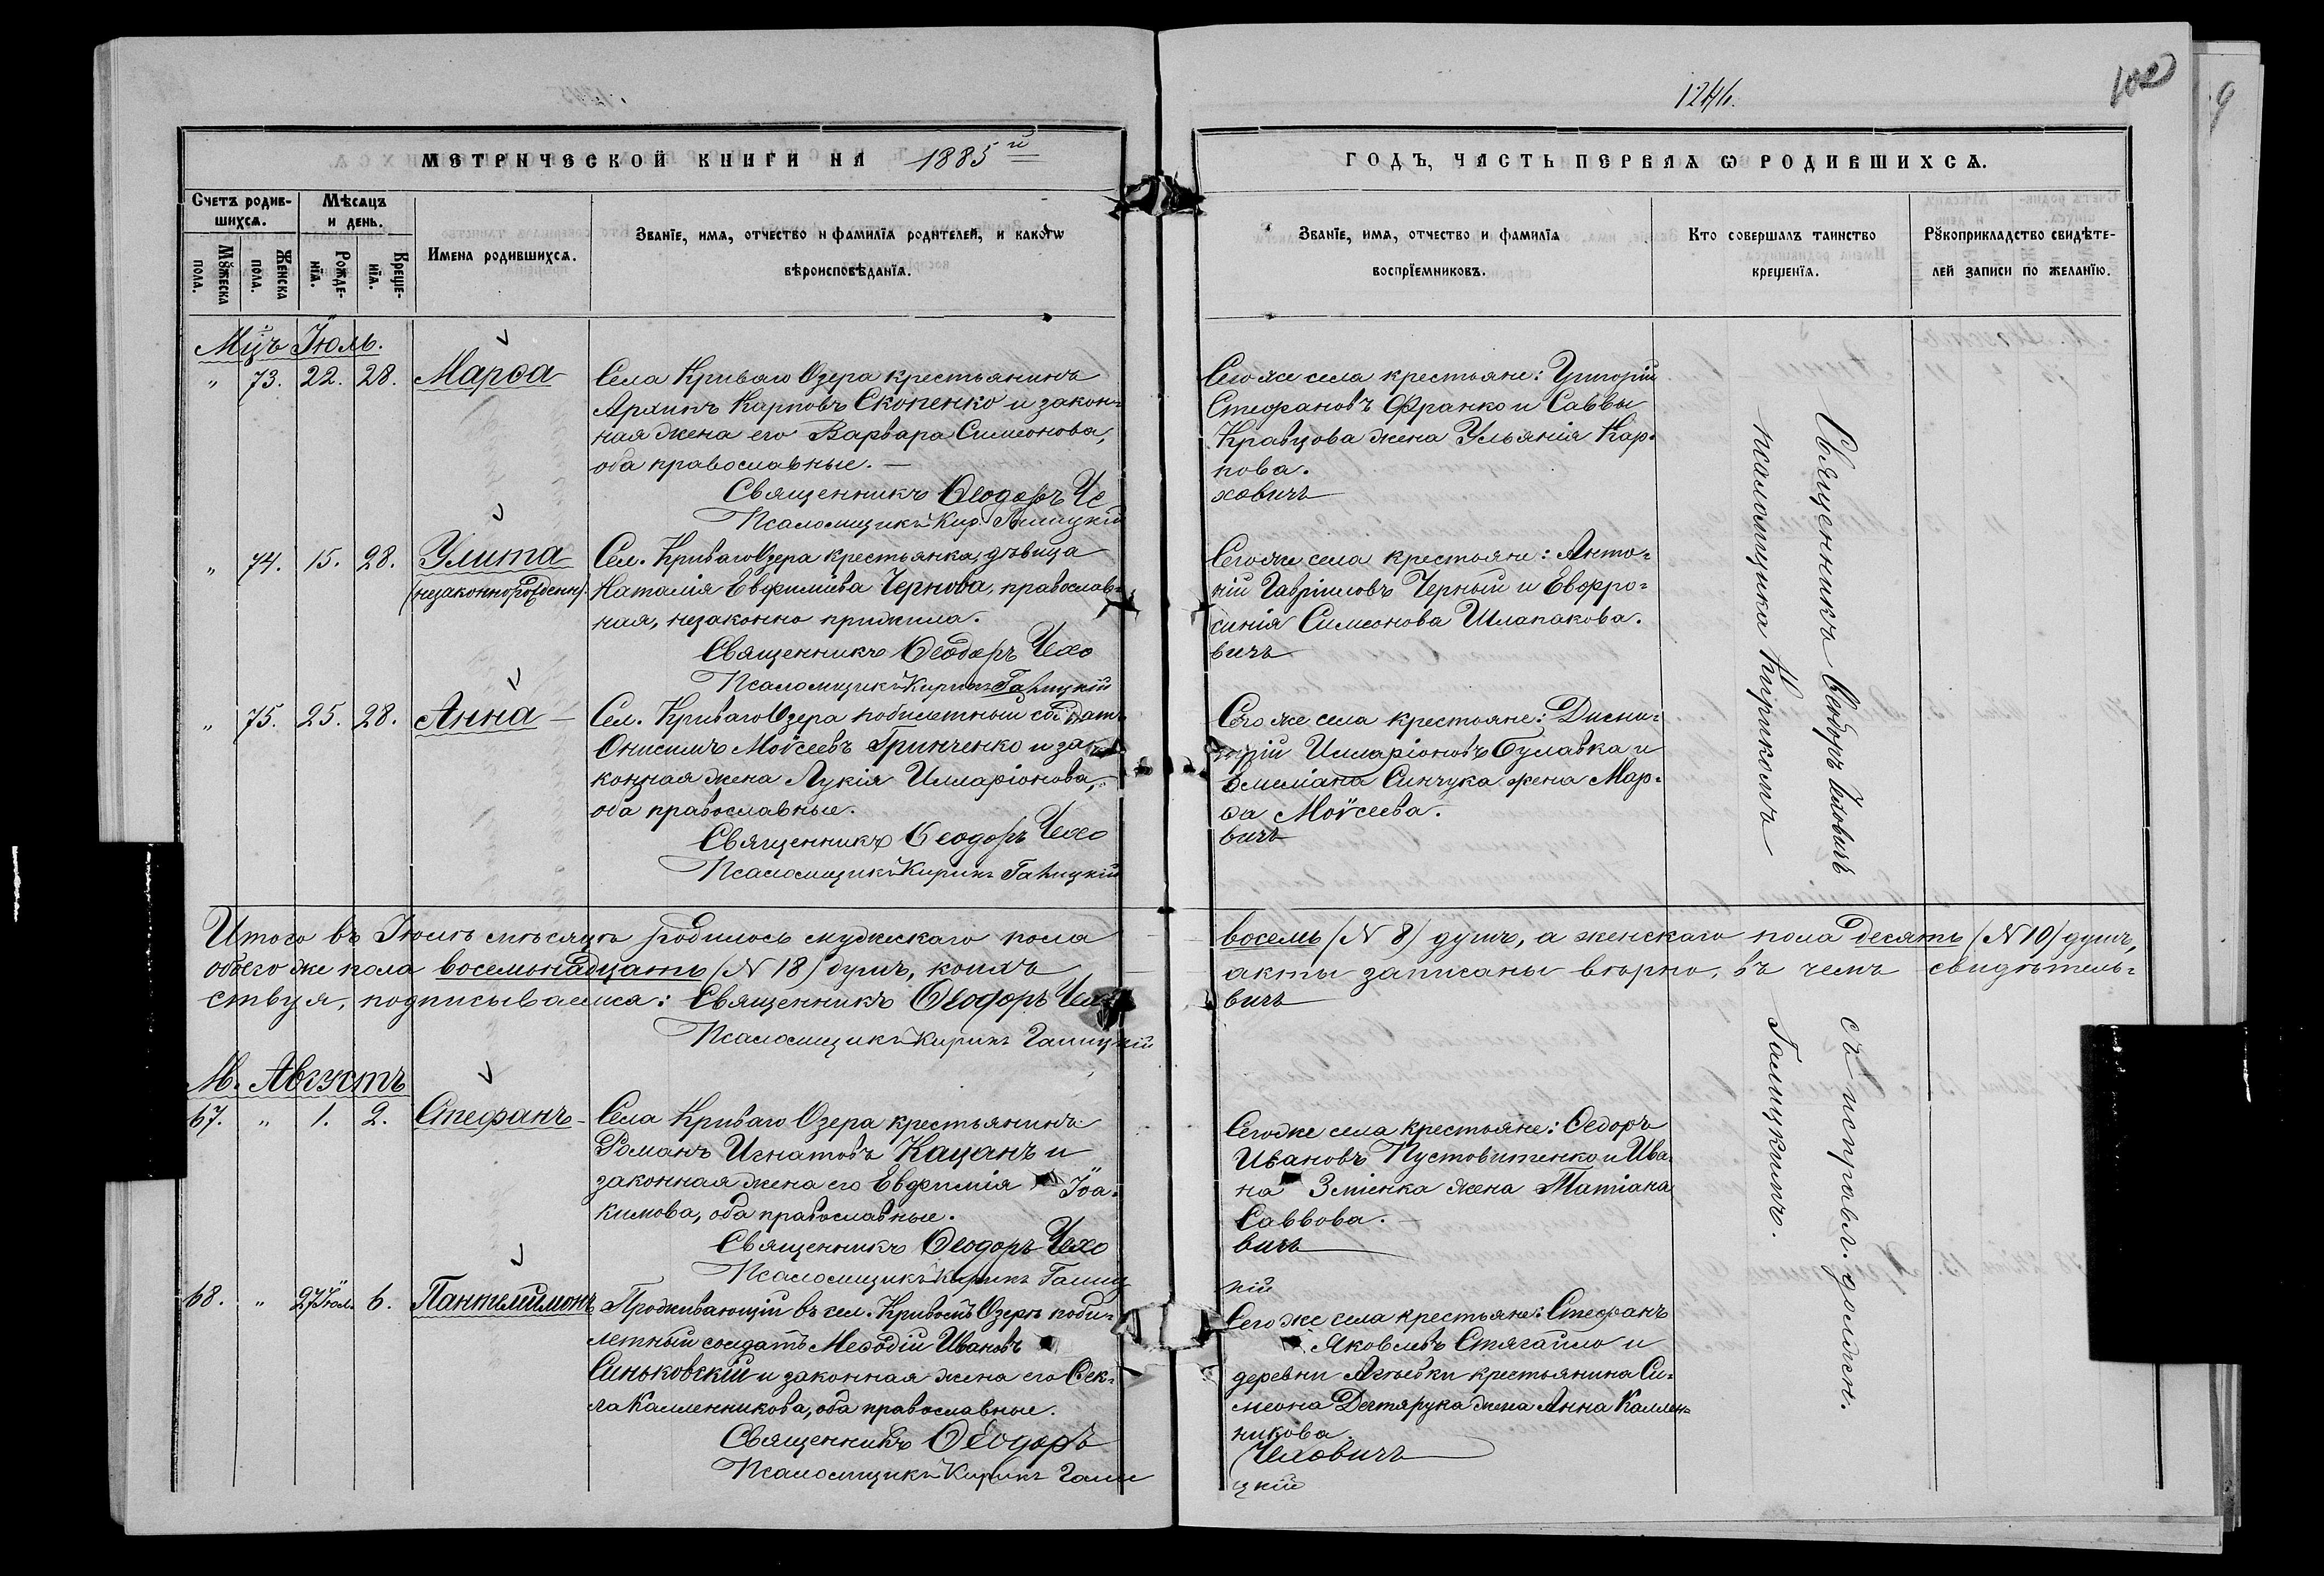 1246.
100
МЕТРИЧЕСКОЙ КНИГИ НА 1885й
ГОДЪ, ЧАСТЬ ПЕРВАЯ Ѡ РОДИВШИХСѦ.
Счетъ родив-
шихсѧ.
Мѣсѧцъ
и день.
Мꙋжеска
пола.
Женска
пола.
Рожде-
нїѧ.
Креще-
нїѧ.
Имена родившихсѧ.
Званїе, имѧ, отчество и фамилїѧ родителей, и какогѡ
вѣроисповѣданїѧ.
Званїе, имѧ, отчество и фамилїѧ
воспрїемниковъ.
Кто совершалъ таинство
крещенїѧ.
Рꙋкоприкладство свидѣте-
лей записи по желанїю.
Мцъ Іюль.
" 73. 22. 28. Марѳа
Села Криваго Озера крестьянинъ
Архипъ Карповъ Скопенко и закон-
ная жена его Варвара Симеонова,
оба православные. —
Священникъ Ѳеодоръ Че
Псаломщикъ Кир. Галицкій
Сего же села крестьяне: Григорій
Стефановъ Франко и Саввы
Кравцова жена Ульянія Кар-
пова.
ховичъ
" 74. 15. 28. Улита
(незаконнорожденн.)
Сел. Криваго Озера крестьянка, дѣвица
Наталія Евфиміева Чернова, православ-
ная, незаконно прижила.
Священникъ Ѳеодоръ Чехо
Псаломщикъ Кирикъ Галицкій
Сего же села крестьяне: Анто-
ній Гавріиловъ Черный и Евфро-
синія Симеонова Шлапакова.
вичъ
" 75. 25. 28. Анна —
Сел. Криваго Озера побилетный солдатъ
Онисимъ Моѵсеевъ Гринченко и за-
конная жена Лукія Илларіонова,
оба православные.
Священникъ Ѳеодоръ Чехо
Псаломщикъ Кирикъ Галицкій
Сего же села крестьяне:
Илларіоновъ Булавка и
Емиліана Синчука жена Мар-
ѳа Моѵсеева.
вичъ
Священникъ Ѳеодоръ Чеховичъ
псаломщика Кирикомъ
Итого въ Іюлѣ мѣсяцѣ родилось мужескаго пола
восемь (№ 8) душъ, а женскаго пола десять (№ 10) душъ,
обоего же пола восемонадцать (№ 18) душъ, коихъ
акты записаны вѣрно, въ чемъ свидѣтель-
ствуя, подписываемся: Священникъ Ѳеодоръ Чехо
вичъ
Псаломщикъ Кирикъ Галицкій
М. Августъ
67. " 1. 2. Стефанъ —
Села Криваго Озера крестьянинъ
Романъ Игнатовъ Кацанъ и
законная жена его Евфимія Іоа-
кимова, оба православные.
Священникъ Ѳеодоръ Чехо
Псаломщикъ Кирикъ Галиц
Сего же села крестьяне: Ѳедоръ
Ивановъ Пустовитенко и Ива-
на Зміенка жена Татіана
Саввова. —
вичъ
кій
68. " 27 Іюл. 6. Пантелиимонъ
Проживающій въ сел. Кривомъ Озерѣ поби-
летный солдатъ Меѳодій Ивановъ
Синьковскій и законная жена его Ѳек-
ла Калленникова, оба православные.
Священникъ Ѳеодоръ
Псаломщикъ Кирикъ Гали
Сего же села крестьяне: Стефанъ
Яковлевъ Стягайло и
деревни крестьянина Си-
меона Дегтярука жена Анна Каллен-
никова.
Чеховичъ
цкій
съ исправл. должн.
Галицкимъ.